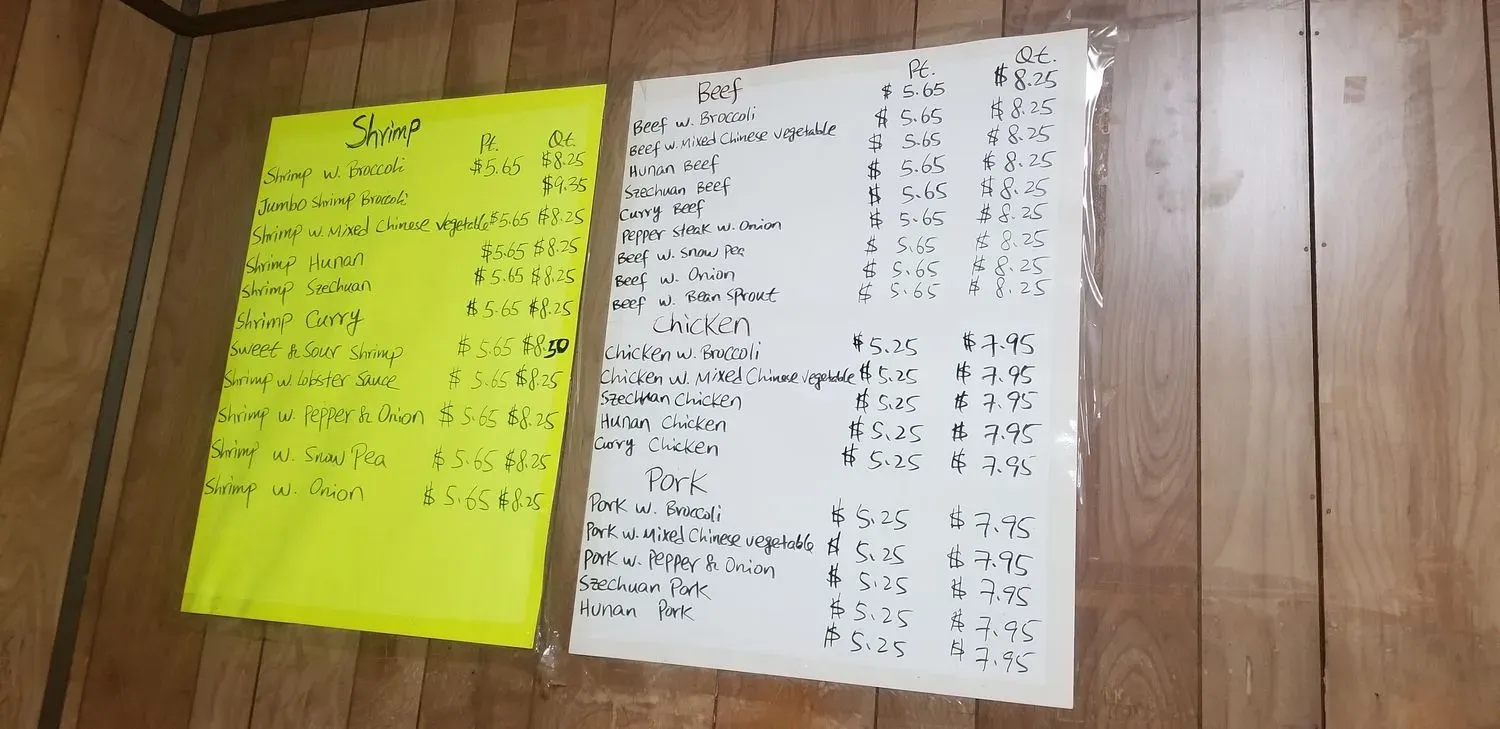 Shrimp
Pt. Qt.
Shrimp w. Broccoli $5.65 $8.25
Jumbo Shrimp Broccoli $9.35
Shrimp w. Mixed Chinese vegetable $5.65 $8.25
Shrimp Hunan $5.65 $8.25
Shrimp Szechuan $5.65 $8.25
Shrimp Curry $5.65 $8.25
Sweet & Sour Shrimp $5.65 $8.50
Shrimp w. lobster Sauce $5.65 $8.25
Shrimp w. Pepper & Onion $5.65 $8.25
Shrimp w. Snow Pea $5.65 $8.25
Shrimp w. Onion $5.65 $8.25
Beef Pt. Qt.
Beef w. Broccoli $5.65 $8.25
Beef w. Mixed Chinese vegetable $5.65 $8.25
Hunan Beef $5.65 $8.25
Szechuan Beef $5.65 $8.25
Curry Beef $5.65 $8.25
Pepper Steak w. Onion $5.65 $8.25
Beef w. Snow Pea $5.65 $8.25
Beef w. Onion $5.65 $8.25
Beef w. Bean Sprout $5.65 $8.25
Chicken
Chicken w. Broccoli $5.25 $7.95
Chicken w. Mixed Chinese vegetable $5.25 $7.95
Szechuan Chicken $5.25 $7.95
Hunan Chicken $5.25 $7.95
Curry Chicken $5.25 $7.95
Pork
Pork w. Broccoli $5.25 $7.95
Pork w. Mixed Chinese vegetable $5.25 $7.95
Pork w. Pepper & Onion $5.25 $7.95
Szechuan Pork $5.25 $7.95
Hunan Pork $5.25 $7.95